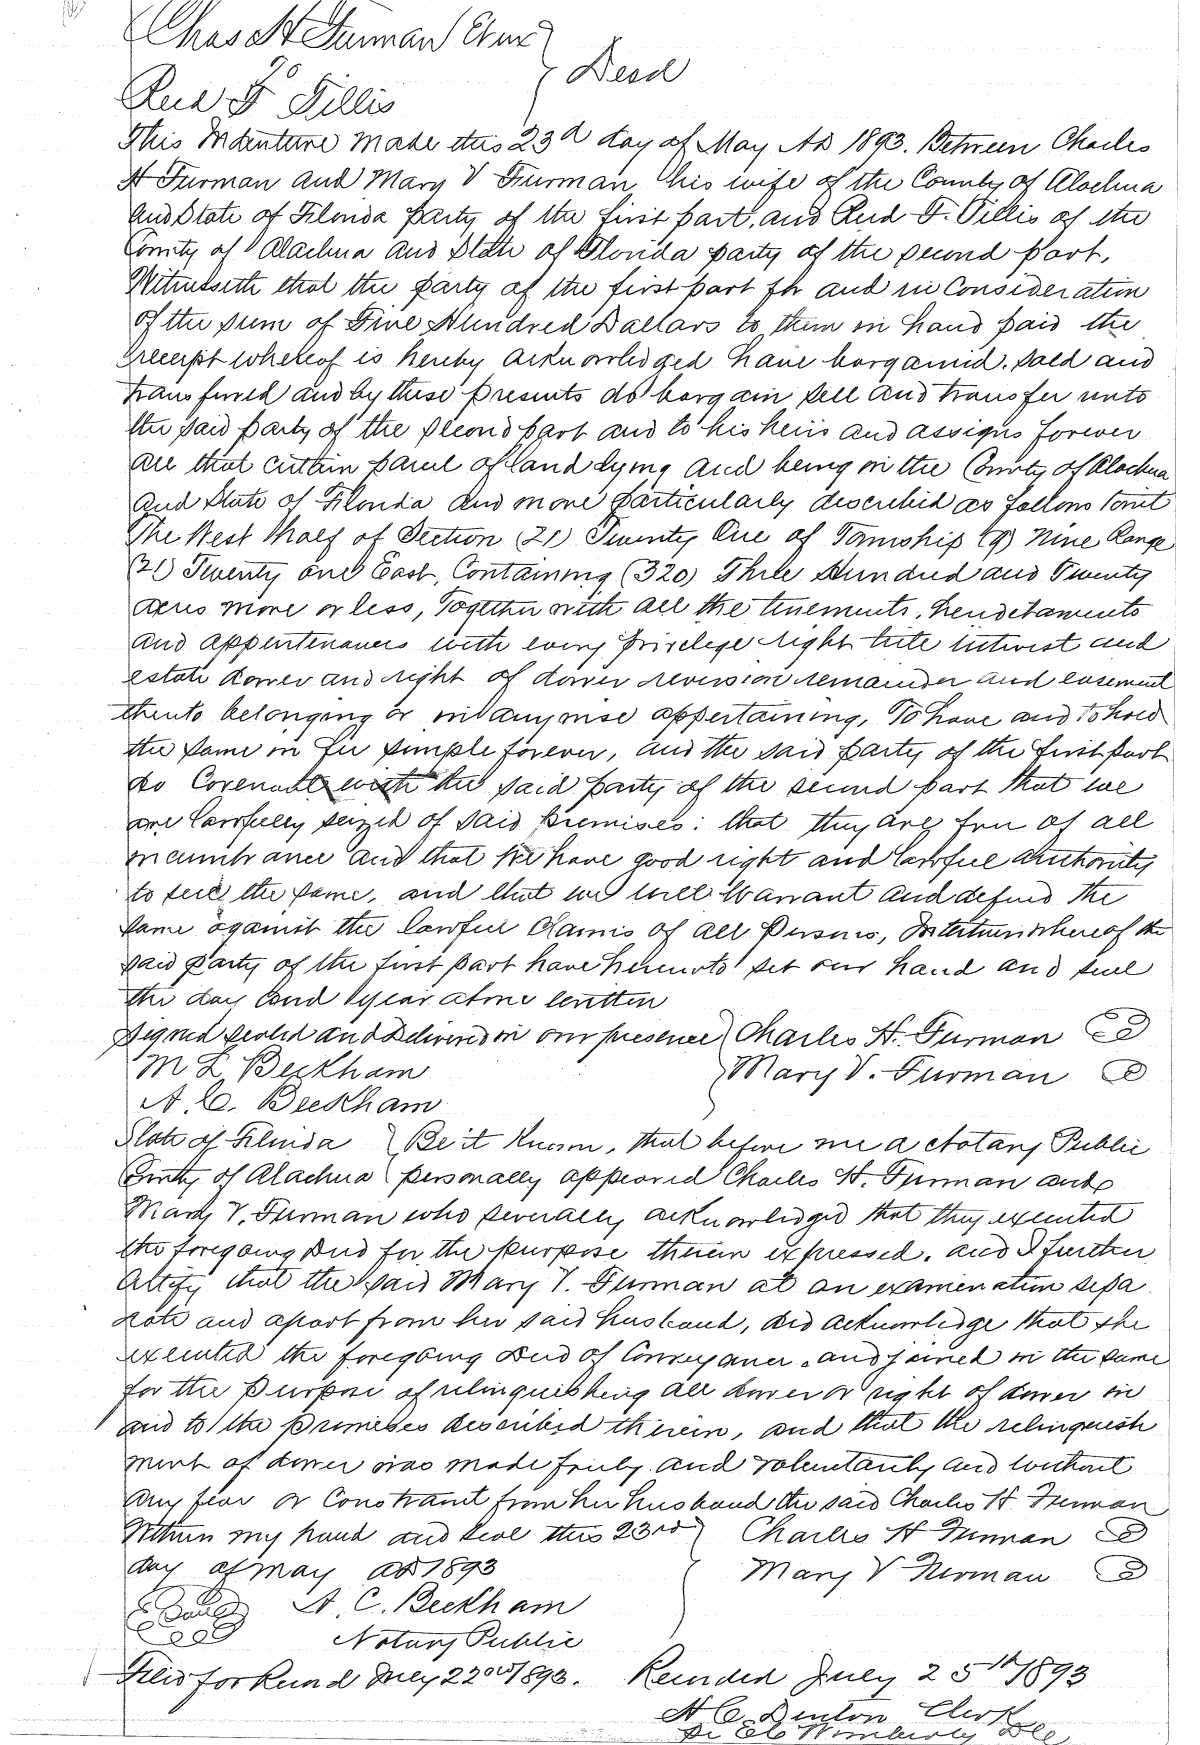 Chas H Furman Et ux
to
Deed
Reid F Tillis
This Indenture made this 23d day of May AD 1893. Between Charles
H Furman and Mary V Furman his wife of the County of Alachua
and State of Florida party of the first part, and Reid F. Tillis of the
County of Alachua and State of Florida party of the second part,
Witnesseth that the party of the first part for and in consideration
of the sum of Five Hundred Dollars to them in hand paid the
receipt whereof is hereby acknowledged have bargained, sold and
transferred and by these presents do bargain sell and transfer unto
the said party of the second part and to his heirs and assigns forever
all that certain parcel of land lying and being in the County of Alachua
and State of Florida and more particularly described as follows towit
The West half of Section (21) Twenty One of Township (9) Nine Range
(21) Twenty one East, Containing (320) Three Hundred and Twenty
acres more or less, Together with all the tenements, hereditaments
and appurtenances with every privilege right title interest and
estate dower and right of dower reversion remainder and easement
thereto belonging or in anywise appertaining, To have and to hold
the same in fee simple forever, and the said party of the first part
do Covenant with the said party of the second part that we
are lawfully seized of said premises: that they are free of all
incumbrance and that we have good right and lawful authority
to sell the same, and that we will Warrant and defend the
same against the lawful claims of all Persons, In testimony whereof the
said party of the first part have hereunto set our hand and seal
the day and year above written
Signed sealed and Delivered in our presence Charles H. Furman
M L Beckham Mary V. Furman
A. C. Beckham
State of Florida Be it known, that before me a Notary Public
County of Alachua personally appeared Charles H. Furman and
Mary V. Furman who severally acknowledged that they executed
the foregoing Deed for the purpose therein expressed, and I further
certify that the said Mary V. Furman at an examination sepa
rate and apart from her said husband, did acknowledge that she
executed the foregoing Deed of Conveyance, and joined in the same
for the purpose of relinquishing all dower or right of dower in
and to the premises described therein, and that the relinquish
ment of dower was made freely and voluntarily and without
any fear or constraint from her husband the said Charles H. Furman
Witness my hand and seal this 23rd Charles H Furman
day of May AD 1893 Mary V Furman
A. C. Beckham
Notary Public
Filed for Record July 22nd 1893. Recorded July 25th 1893
H. C. Denton Clerk
Wimberly D.C.